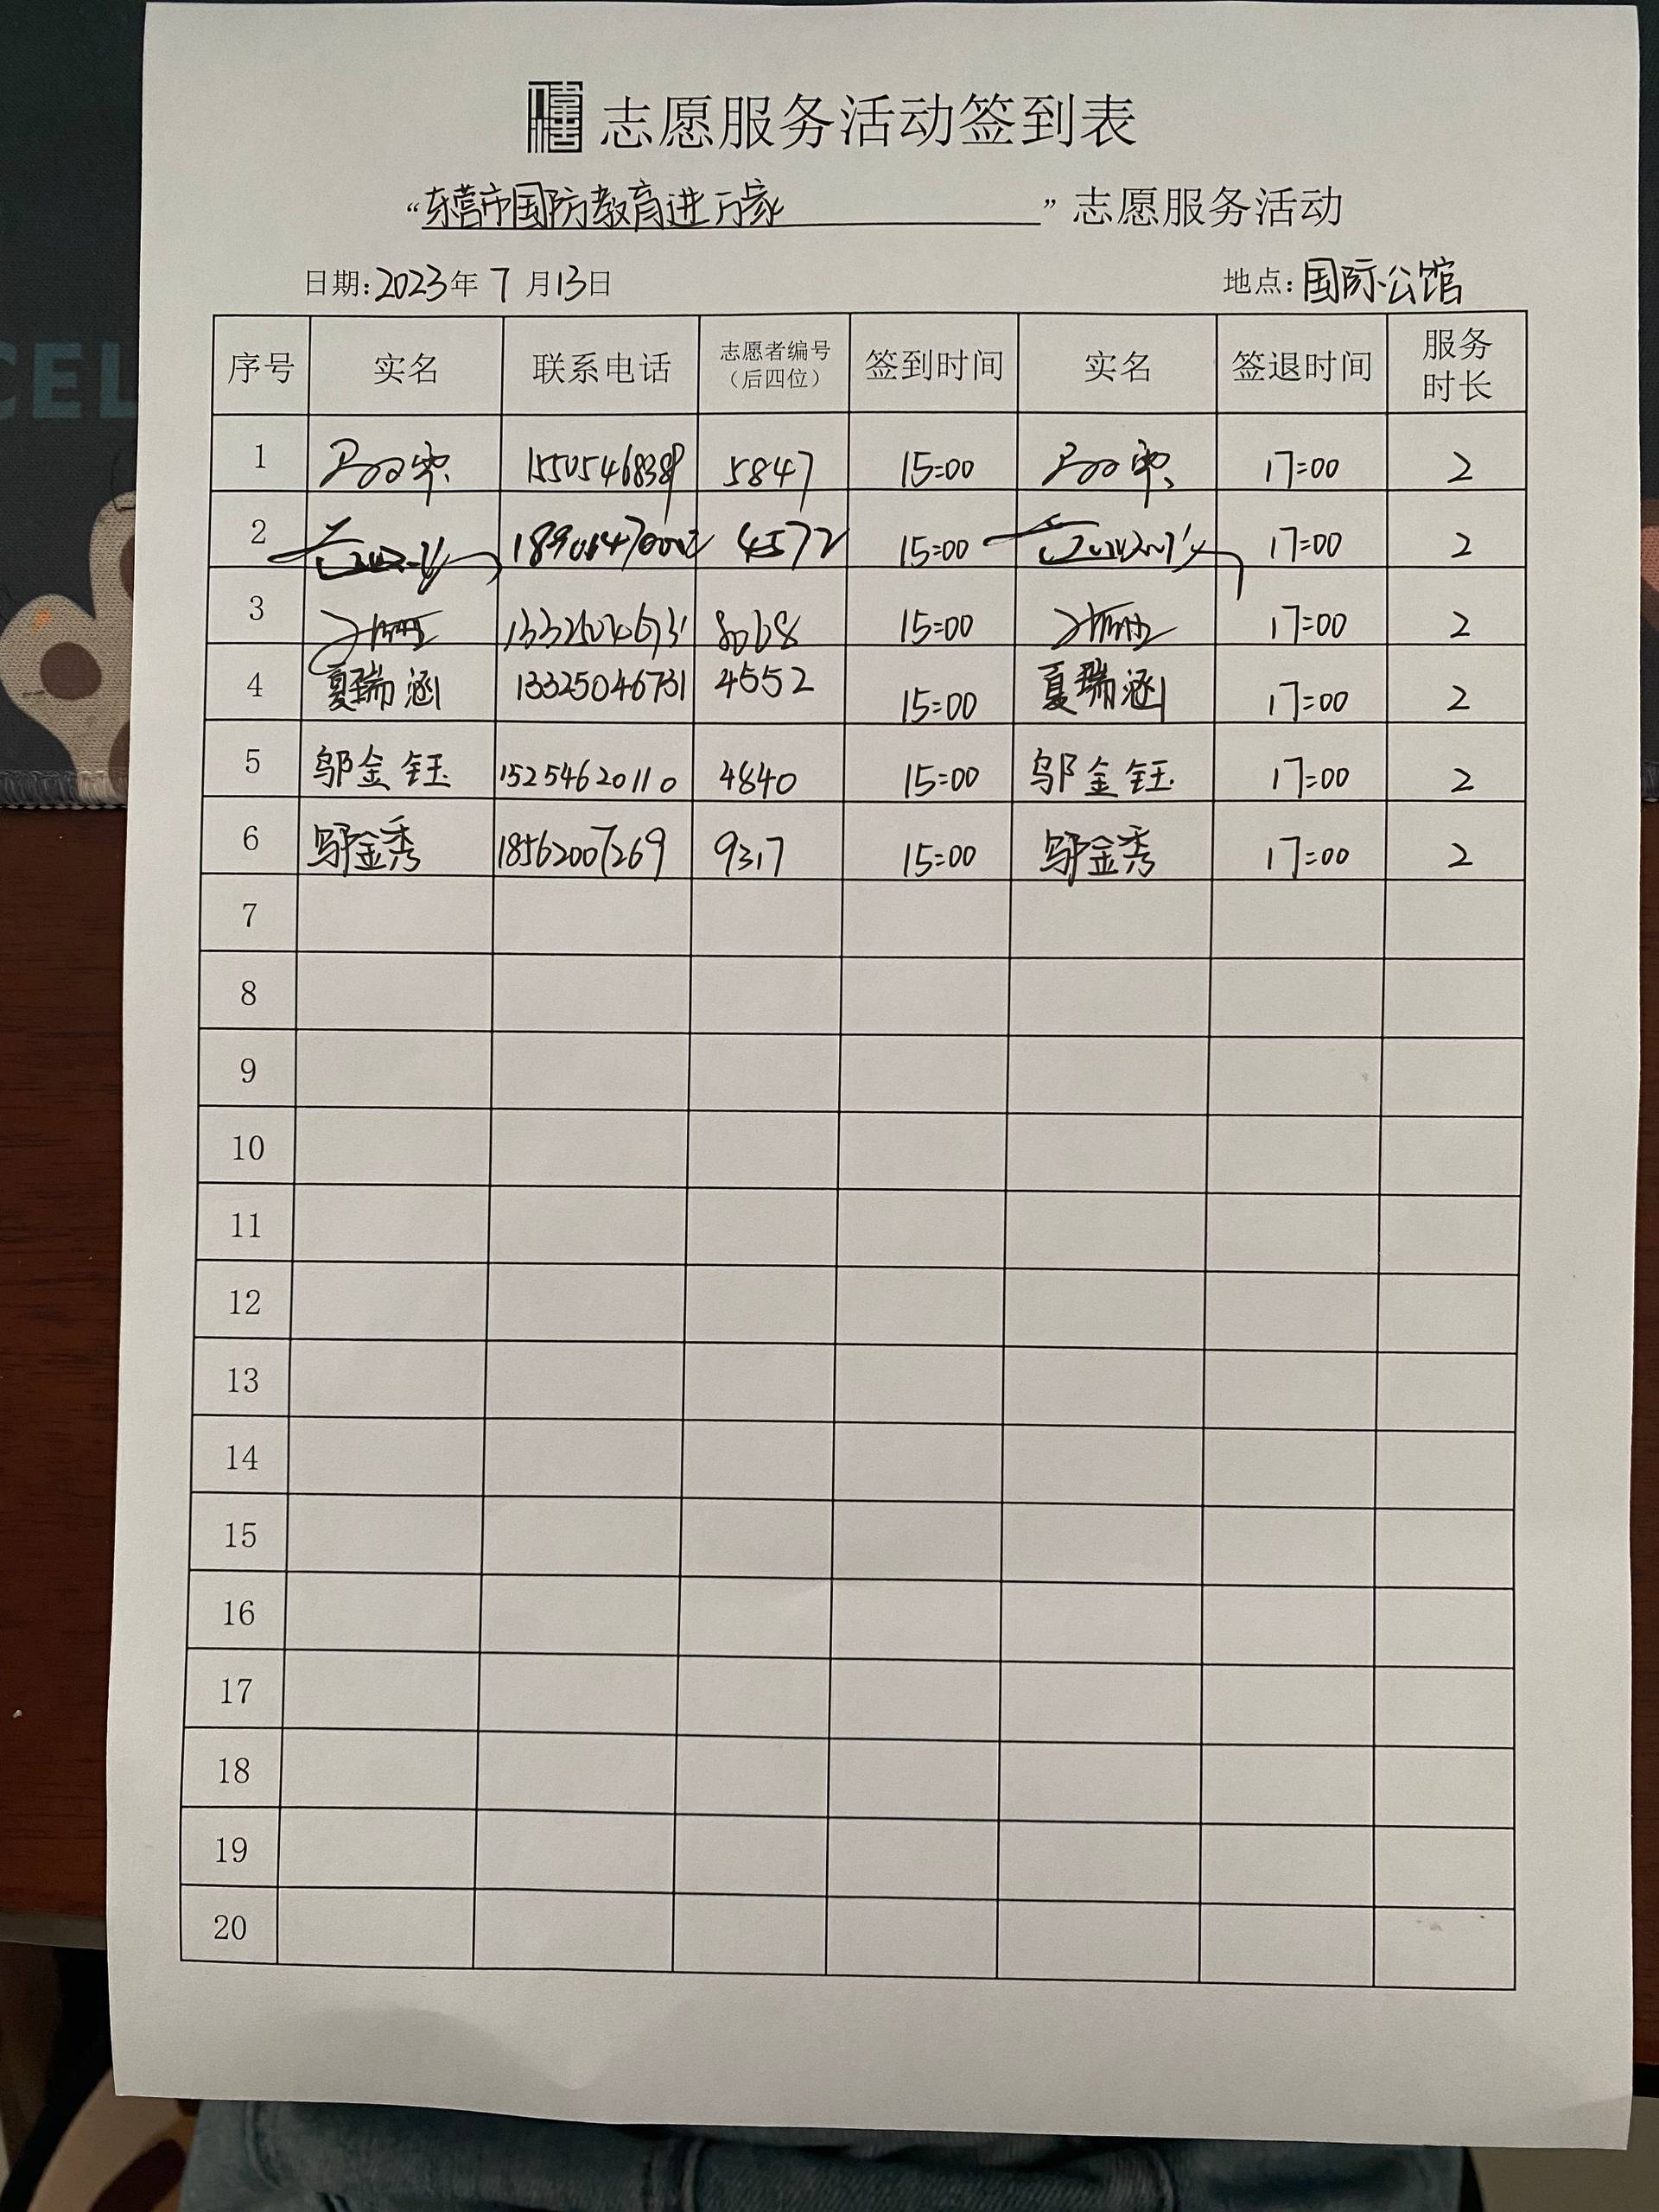 志愿服务活动签到表
“东营市国防教育进万家”志愿服务活动
日期:2023年7月13日 地点:国际公馆
序号 实名 联系电话 志愿者编号(后四位) 签到时间 实名 签退时间 服务时长
1 5847 15:00 17:00 2
2 4572 15:00 17:00 2
3 15:00 17:00 2
4 夏瑞涵 13325046731 4552 15:00 夏瑞涵 17:00 2
5 邬金钰 15254620110 4840 15:00 邬金钰 17:00 2
6 邬金秀 18562007269 9317 15:00 邬金秀 17:00 2
7
8
9
10
11
12
13
14
15
16
17
18
19
20